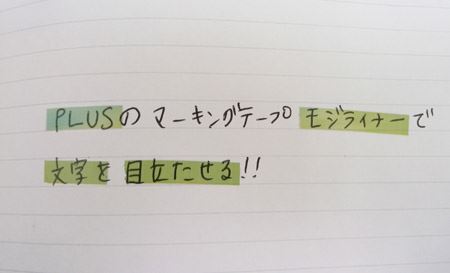 PLUSのマーキングテープモジライナーで
文字を目立たせる!!